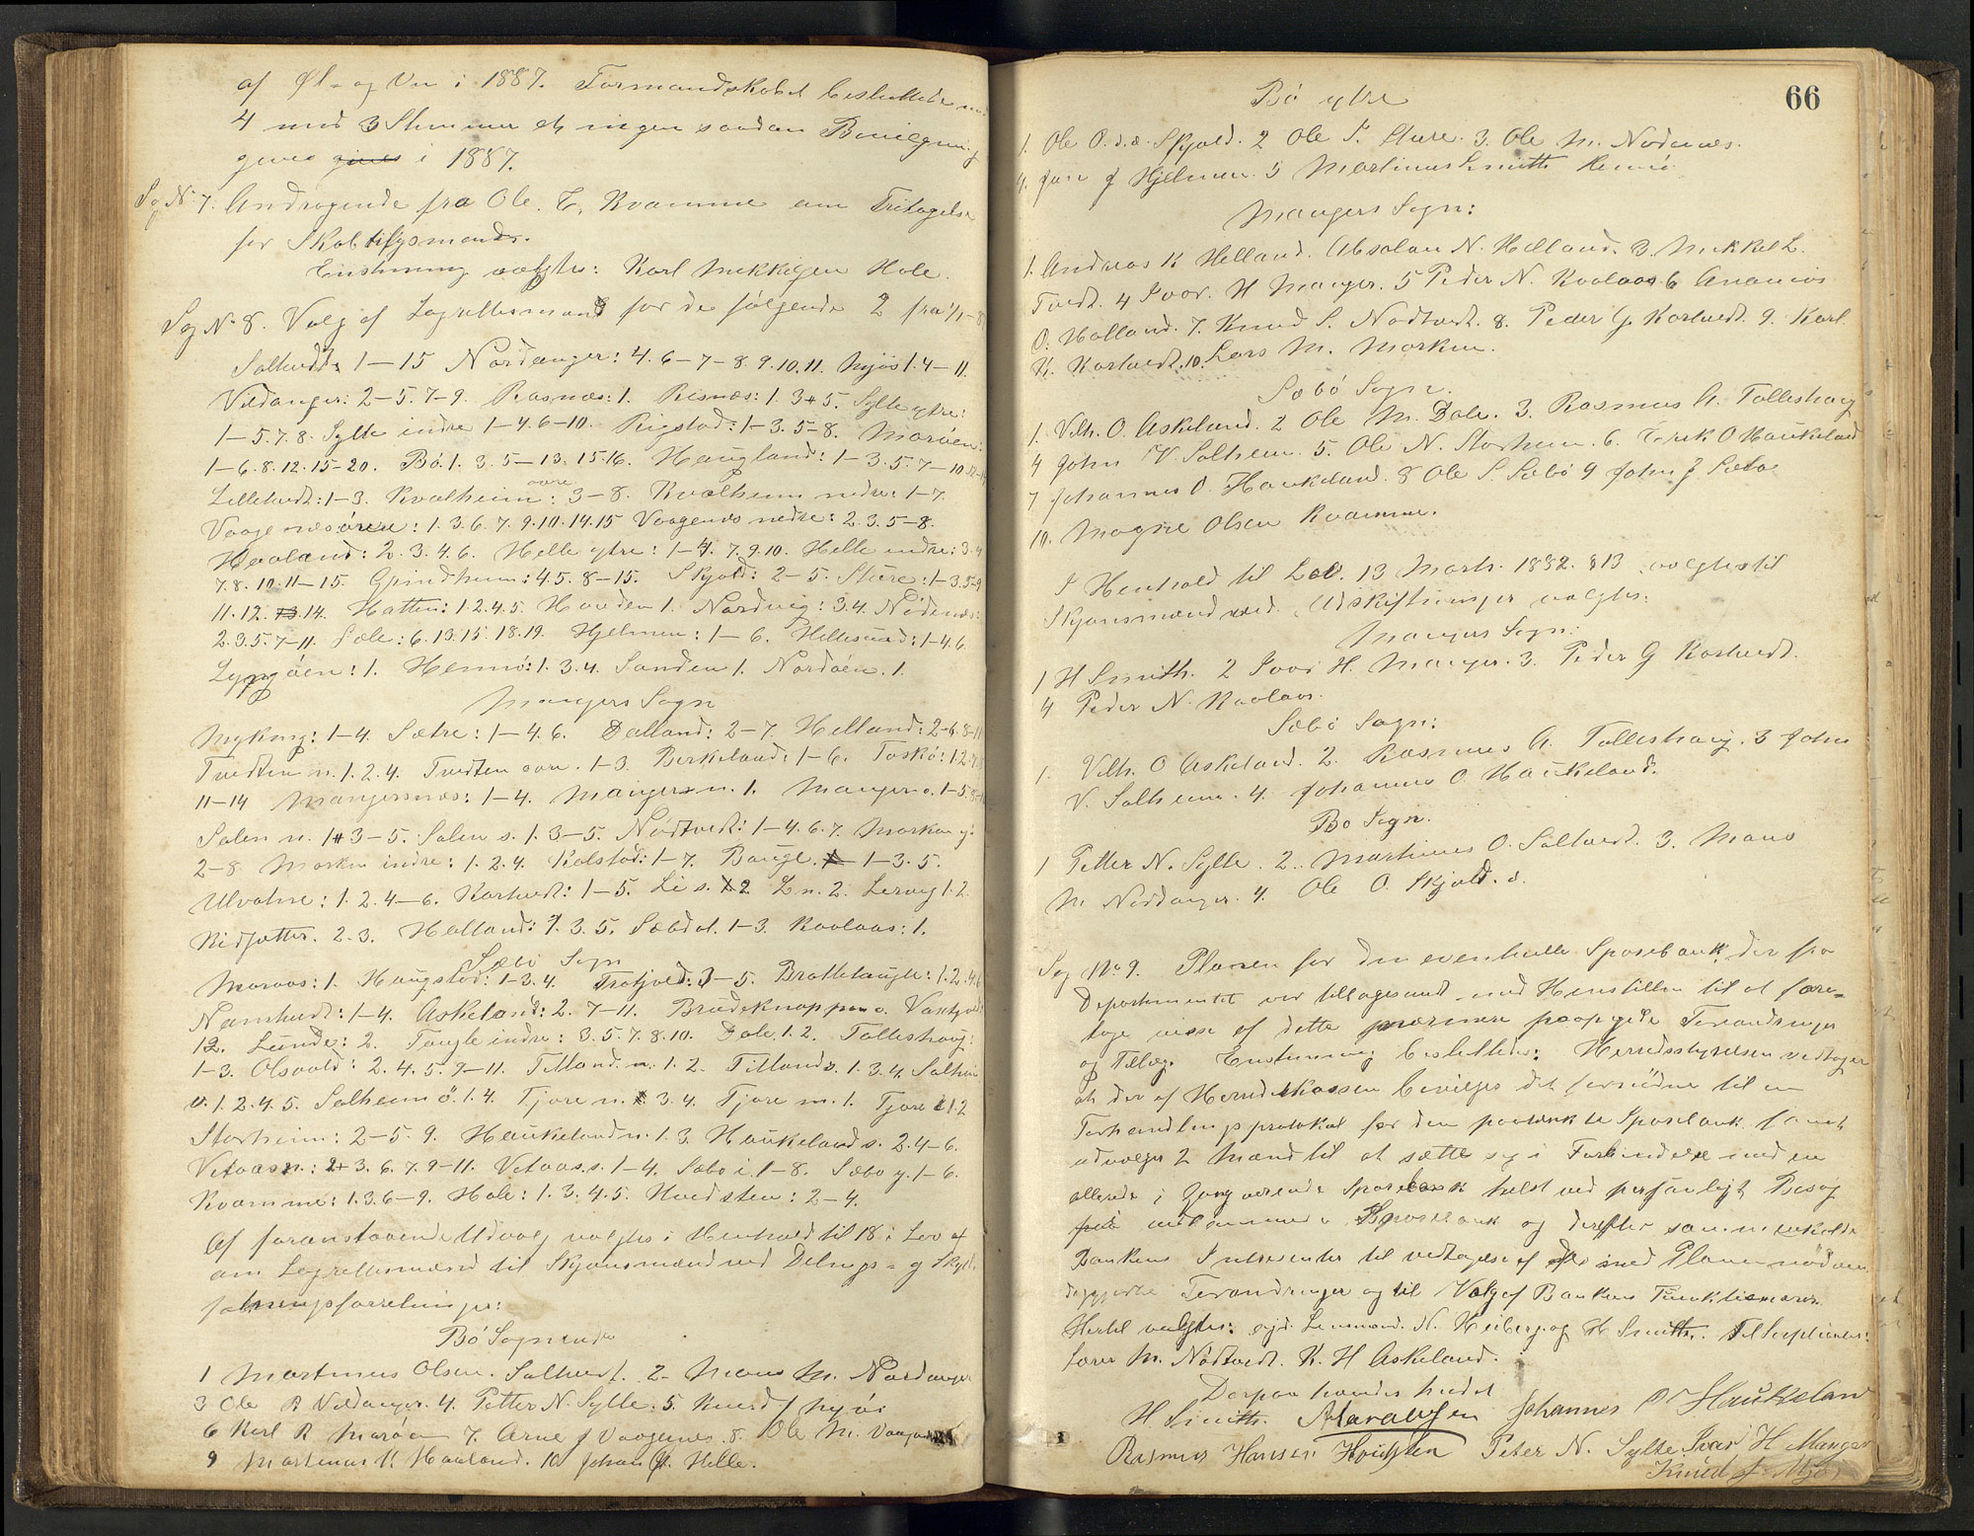 af Øl- og Vin i 1887. Formandskabet besluttede med
4 mod 3 Stemmer at ingen saadan Bevilgning
gives i 1887.
Sag No 7. Andragende fra Ole. T. Kvamme om Fritagelse
for Skatteligsmand.
Enstemmig valgtes: Karl Mikkelsen Hole.
Sag No 8. Valg af Lagrettesmænd for de følgende 2 fra 1/1-87
Saltvedt: 1-15 Nordanger: 4. 6-7-8. 9. 10. 11. Mjøs 1. 4-11.
Vildanger: 2-5. 7-9. Rasnæs: 1. Risnæs: 1. 3+5. Sylte ytre:
1-5. 7. 8. Sylte indre 1-4. 6-10. Rigstad: 1-3. 5-8. Marøen:
1-6. 8. 12. 15-20. Bø. 1. 3. 5-13. 15. 16. Haugland: 1-3. 5. 7-10.
Lilletvedt: 1-3. Kvalheim øvre: 3-8. Kvalheim nedre: 1-7.
Vaagenæs øvre: 1. 3. 6. 7. 9. 10. 14. 15 Vaagenes nedre: 2. 3. 5-8.
Haaland: 2. 3. 4. 6. Helle ytre: 1-4. 7. 9. 10. Helle indre: 3.
7. 8. 10. 11-15. Grindheim: 4. 5. 8-15. Skjold: 2-5. Sture: 1-3. 5-9
11. 12. 14. Hatten: 1. 2. 4. 5. Hovden 1. Nordvig: 3. 4. Nødenæs:
2. 3. 5. 7-11. Sæle: 6. 13. 15. 18. 19. Hjelmen: 1-6. Hellesund: 1-4. 6.
Lyngøen: 1. Hennø: 1. 3. 4. Sanden 1. Nordøen. 1.
Mangers Sogn
Myking: 1-4. Sætre: 1-4. 6. Dalland: 2-7. Helland: 2-6. 8-11
Tvedten n. 1. 2. 4. Tvedten øvre. 1-3. Birkeland: 1-6. Toskø: 1. 2.
11-14 Mangersnæs: 1-4. Manger n. 1. Manger o. 1-5.
Salen n. 1 3-5. Salen s. 1. 3-5. Nødtvedt: 1-4. 6. 7. Morken y:
2-8 Morken indre: 1. 2. 4. Kalstad: 1-7. Bauge. 1-3. 5.
Ulvatne: 1. 2. 4-6. Kartvedt: 1-5. Li s. 2 L n. 2. Lervig 1. 2.
Risfatter. 2. 3. Halland: 1. 3. 5. Sæbdal. 1-3. Kaalaas: 1.
Sæbø Sogn
Maraas: 1. Haugstad: 1-3. 4. Trafjeld: 3-5. Brattetaugle: 1. 2. 4. 6
Namtvedt: 1-4. Askeland: 2. 7-11. Brudeknappen o. Vaxtjvedt
12. Lunde: 2. Taugle indre: 3. 5. 7. 8. 10. Dale. 1. 2. Tolleshaug:
1-3. Olsvold: 2. 4. 5. 9-11. Titland n. 1. 2. Titland s. 1. 3. 4. Solheim
v. 1. 2. 4. 5. Solheim ö. 1. 4. Fjore n. 3. 4. Fjore m. 1. Fjore 1. 2
Storheim: 2-5. 9. Haukeland n. 1. 3. Haukeland s. 2. 4-6.
Vetaas n.: 2+3. 6. 7. 9-11. Vetaas s. 1-4. Sæbø i. 1-8. Sæbø y. 1-6.
Kvamme: 1. 3. 6-9. Hole: 1. 3. 4. 5. Hvidsten: 2-4.
Af foranstaaende Udvalg valgtes i Henhold til 18 i Lov af
om Lagrettesmænd til Skjønsmænd ved Delings- og Skyld-
sætningsforretninger:
Bø Sogn indre
1 Martinus Olsen. Saltvedt. 2. Mons M. Nordanger
3 Ole R Vildanger. 4. Petter N. Sylte. 5. Knud J Mjøs
6 Karl R Marøen 7. Arne J Vaagenes. 8. Ole M. Vaagenæs
9 Martinus K Haaland. 10 Johan A. Helle.
66
Bø ytre
1. Ole O. d.æ. Skjold. 2 Ole P. Sture. 3. Ole M. Nødenes.
4. Jan J Hjelmen. 5 Martinus Smith Hennø
Mangers Sogn:
1. Andreas K Helland. Absalon N. Helland. 3. Mikkel L.
Tvedt. 4 Ivar. H Manger. 5 Peder N. Kaalaas 6 Ananias
O. Halland. 7. Knud S. Nødtvedt. 8. Peder G. Kartvedt. 9. Karl
K. Kartvedt. 10. Lars M. Morken.
Sæbø Sogn.
1. Vilh. O. Askeland. 2 Ole M. Dale. 3. Rasmus A. Tolleshaug
4 John V Solheim. 5. Ole N. Storheim. 6. Erik O Haukeland
7 Johannes O. Haukeland. 8 Ole S. Sæbø 9 John J Sæbø
10. Magne Olsen Kvamme.
I Henhold til Lov. 13 Marts. 1882. §13 valgtes til
Skjønsmænd ved Udskiftninger valgtes:
Mangers Sogn:
1 H Smith. 2 Ivar H. Manger. 3. Peder G Kartvedt.
4 Peder N. Kaalaas.
Sæbø Sogn:
1. Vilh. O Askeland. 2. Rasmus A. Tolleshaug. 3 John
V. Solheim. 4. Johannes O. Haukeland.
Bø Sogn.
1 Petter N. Sylte. 2. Martinus O. Saltvedt. 3. Mons
M. Nordanger. 4. Ole O. Skjold. d.
Sag No 9. Planen for den eventuelle Sparebank, der fra
Departementet var tilbagesendt med Henstillen til at fore-
tage visse af dette nærmere paapegede Forandringer
og Tillæg. Enstemmig besluttedes: Herredsstyrelsen vedtager
at der af Herredskassen bevilges det fornødne til en
Forhandlingsprotokol for den paatænkte Sparebank samt
udvælger 2 Mænd til at sætte sig i Forbindelse med en
allerede i Gang værende Sparebank helst ved personligt Besøg
Sparebank og derefter sammenkalde
Bankens Interesenter til Vedtagelse af de med Planen nødven
diggjorte Forandringer og til Valg af Bankens Funktionærer.
Hertil valgtes: Lensmand. N. Heiberg og H Smith. Til Suplean-
ter M. Nødtvedt. K. H Askeland.
Derpaa hævdes Mødet
H Smith. Johannes O Haukeland
Rasmus Hansen Hvidsten Peter N. Sylte Ivar H Manger
Knud J. Mjøs